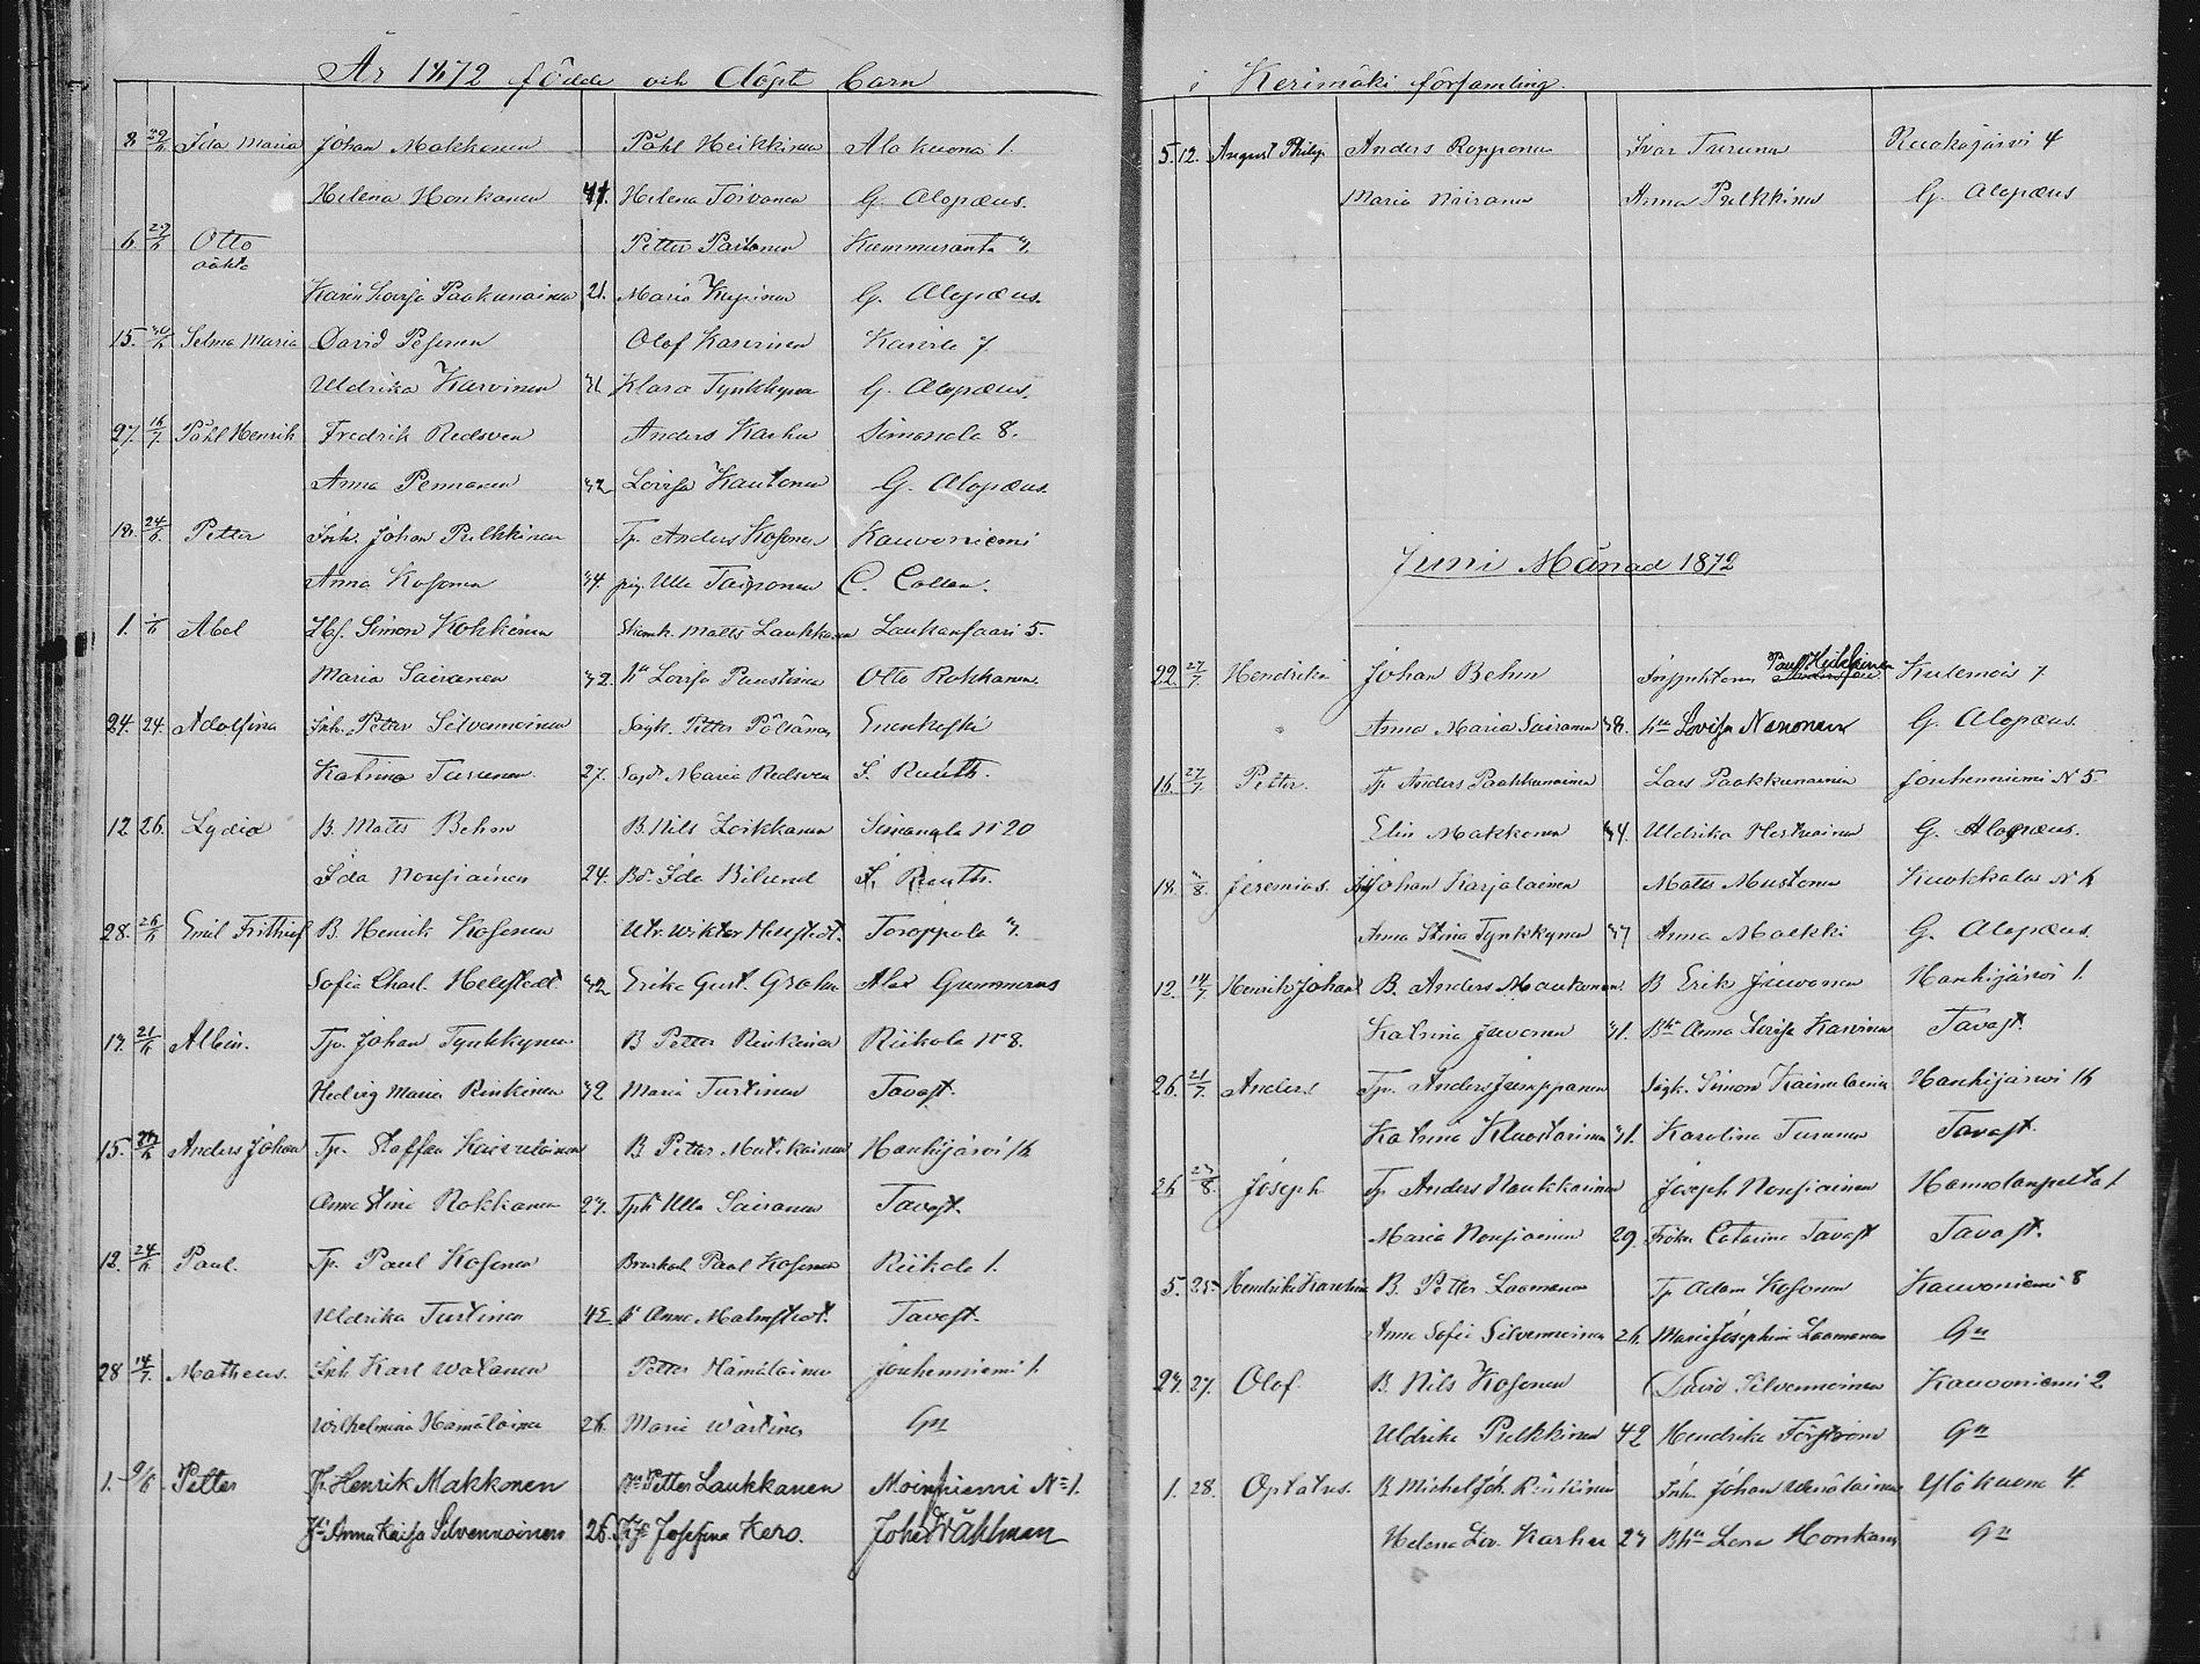 År 1872 födde och döpte barn
8. 29/6 Ida Maria Johan Makkonen Påhl Heikkinen Alakuona 1.
Helena Honkanen 41. Helena Toivanen G. Alopæus.
6. 29/6 Otto Petter Partanen Kummuranta 3.
oäkta
Karin Lovisa Paakunainen 21. Maria Kupinen G. Alopæus.
15. 30/6 Selma Maria David Pesonen Olof Karvinen Karvila 7
Uldrika Karvinen 31 Klara Tynkkynen G. Alopæus.
27. 16/7 Påhl Henrik Fredrik Redsven Anders Karhu Simanala 8.
Anna Pennanen 32 Lovisa Kautonen G. Alopæus.
18. 24/6 Petter Inh. Johan Pulkkinen Tp. Anders Kosonen Kauvoniemi
Anna Kosonen 34. pig. Ulla Taiponen C. Collan.
1. Abel Simon Kokkonen Matts Laukkanen Laukansaari 5.
Maria Sairanen 32. hu Lovisa Paustinen Otto Rokkanen
24. 24. Adolfina Inh. Petter Silvennoinen Petter Pöllänen Enonkoski
Katrina Turunen 27. Maria Redsven Ruuth.
12 26. Lydia B. Matts Behm B. Nils Loikkanen Simanala No 20
Ida Nousiainen 24. Bd. Ida Bilund Ruuth.
28. 26/6 Emil Frithiof B. Henrik Kosonen Wiktor Hellstedt. Toroppala 3.
Sofia Charl. Hellstedt 32 Erika Gust. Grahn Alex Gummerus
13. 21/6 Albin. Tp. Johan Tynkkynen B Petter Rinkinen Riikola No 8.
Hedvig Maria Rinkinen 32 Maria Turtinen Tavast.
15. Anders Johan Tp. Staffan Kaivulainen B Petter Mutikainen Hanhijärvi 16
Anna Stina Rokkanen 23. Ulla Sairanen Tavast.
12. 24/6 Paul. Tp. Paul Kosonen Paul Kosonen Riikola 1.
Uldrika Turtinen 42 Anna Malmstedt. Tavast.
28 14/7. Matheus. Inh Karl Watanen Petter Hämäläinen Jouhenniemi 1.
Wilhelmina Hämäläinen 26. Maria Wärtinen Gn
1. 9/6. Petter Tp. Henrik Makkonen Petter Laukkanen Moinniemi No 1.
Anna Kaisa Silvennoinen 26. Josefina Kero. Joh. Wåhlman
i Kerimäki församling.
5. 12. August Philip. Anders Ropponen Ivar Turunen Ruokojärvi 4
Maria Noiranen Anna Pulkkinen G. Alopæus
Juni Månad 1872
22. 27/7. Hendrika Johan Behm Inspektoren Paul Heikkinen Kulennoi 7
Anna Maria Sairanen 38. hu Lovisa Nenonen G. Alopæus.
16. 27/7. Petter. Tp Anders Paakkunainen Lars Paakkunainen Jouhenniemi N 5
Elin Makkonen 34. Uldrika Hertuainen G. Alopæus.
18. 3/8. Jeremias. Johan Karjalainen Matts Mustonen Kuokkala N 6
Anna Stina Tynkkynen 37 Anna Malkki G. Alopæus.
12. 14/7 Henrik Johan B. Anders Maukonen. B Erik Juvonen Hanhijärvi 1.
Katrina Juvonen 31. Anna Lovisa Karvinen Tavast.
26. 21/7. Anders Tp. Anders Jumppanen Simon Kaivulainen Hanhijärvi 16
Katrina Kluostarinen 31. Karolina Turunen Tavast.
26 23/8. Joseph Tp Anders Naukkarinen Joseph Nousiainen Hannolanpelto 1
Maria Nousiainen 29. Fröken Catarina Tavast Tavast.
5. 25. Hendrika Karolina B. Petter Laamanen Tp Adam Kosonen Kauvoniemi 8
Anna Sofia Silvennoinen 26. Maria Josephina Laamanen Gn
23. 27. Olof. B. Nils Kosonen David Silvennoinen Kauvoniemi 2
Uldrika Pulkkinen 42 Hendrika Forsström Gn
1. 28. Optatus. B. Michel Joh. Rinkinen Inh. Johan Venäläinen Yläkuona 4.
Helena Lov. Karhu 23 Lena Honkanen Gn